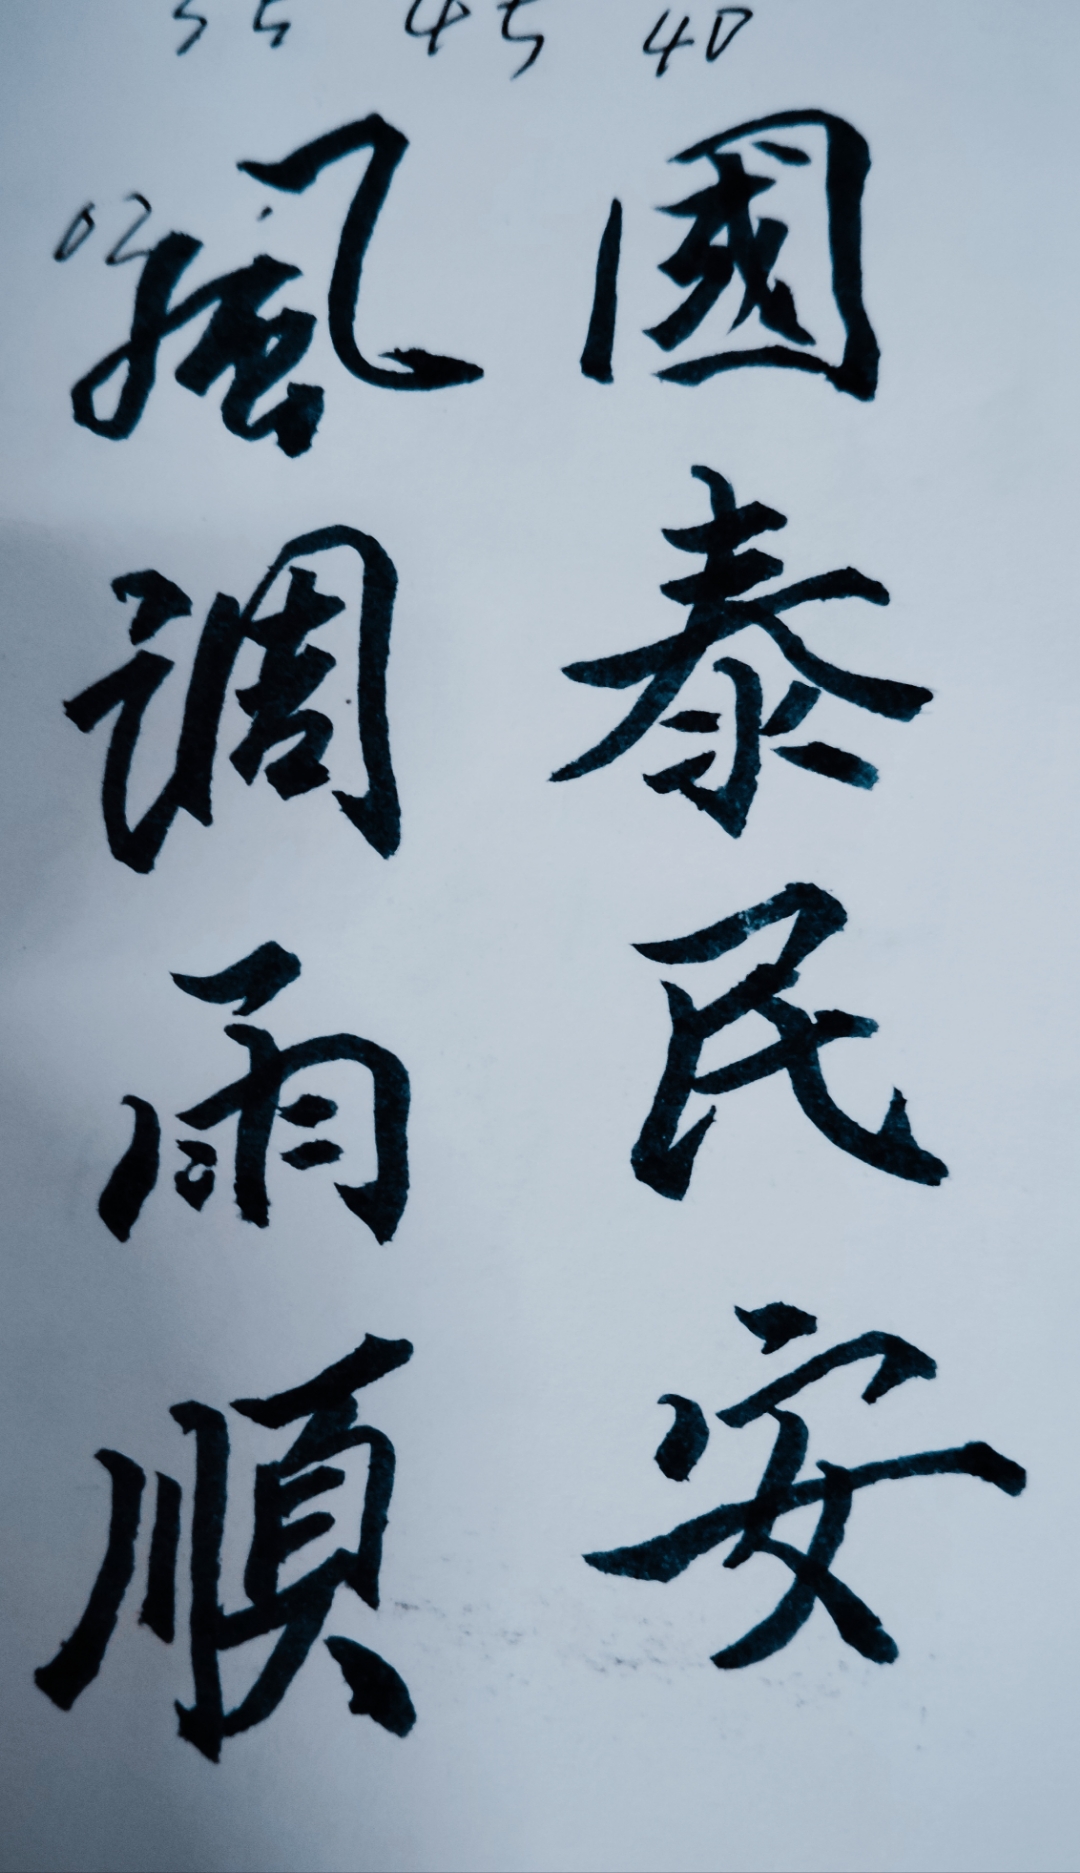 35 45 40
02
國泰民安
風調雨順